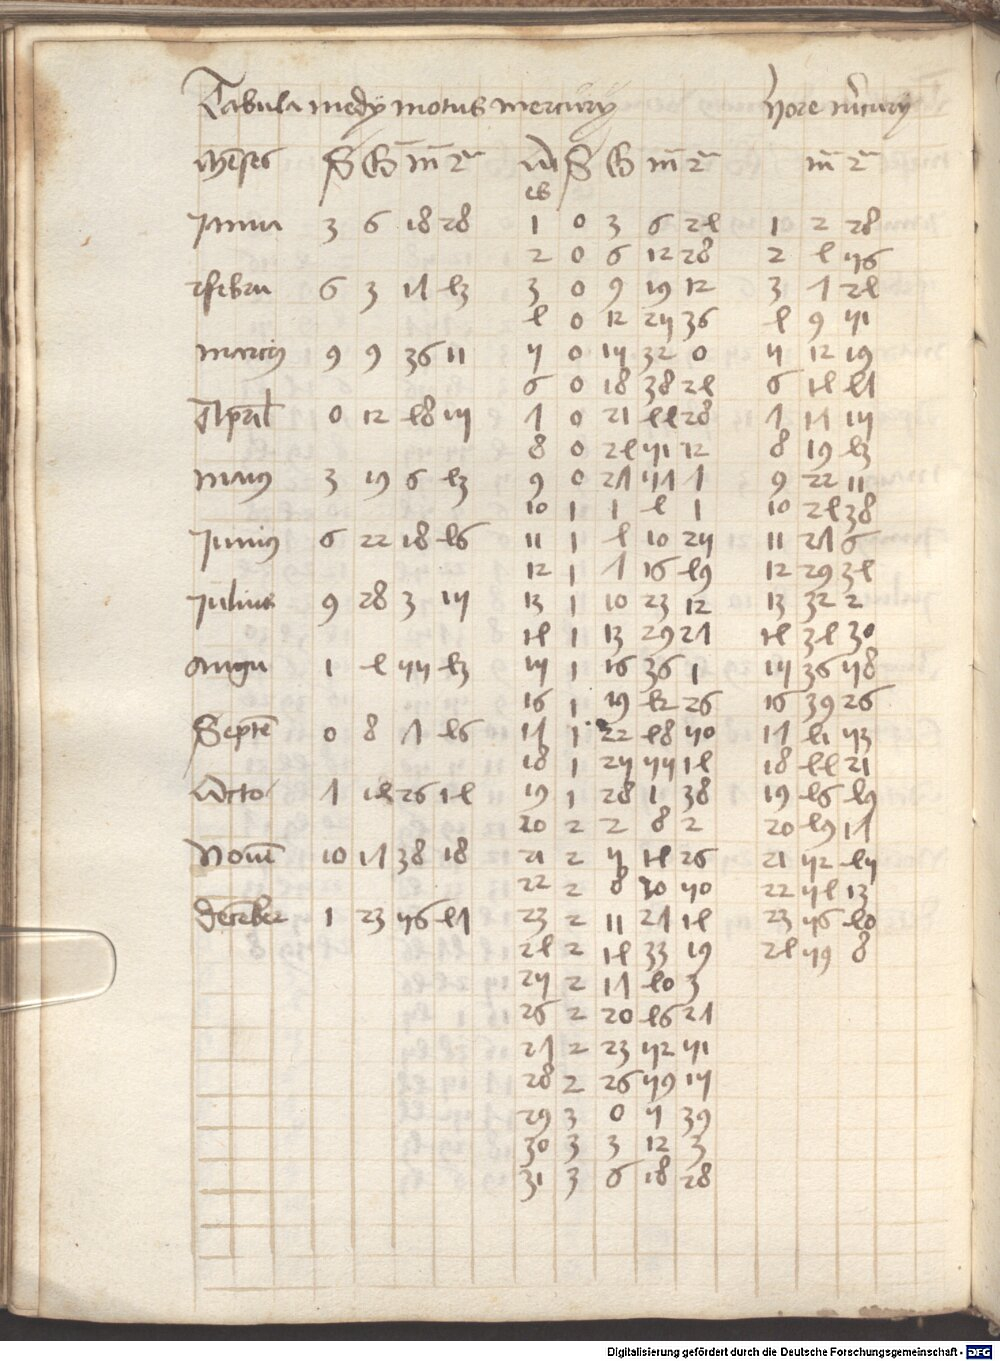 Tabula medij motus mercurij hore mercurij
menses S G m 2 S G m 2 m 2
Janua 3 6 18 28 1 0 3 6 24 1 2 28
2 0 6 12 28 2 4 56
ffebru 6 3 17 43 3 0 9 19 12 3 7 24
4 0 12 25 36 4 9 51
marcius 9 9 36 11 5 0 15 32 0 5 12 19
6 0 18 38 24 6 14 47
April 0 12 48 15 7 0 21 44 28 7 17 15
8 0 24 51 12 8 19 43
maius 3 19 6 43 9 0 27 57 7 9 22 11
10 1 1 4 1 10 24 38
Junius 6 22 18 46 11 1 4 10 25 11 27 6
12 1 7 16 49 12 29 34
Julius 9 28 3 15 13 1 10 23 12 13 32 2
14 1 13 29 27 14 34 30
Augu 1 4 55 43 15 1 16 36 1 15 36 58
16 1 19 42 26 16 39 26
Septem 0 8 7 46 17 1 22 48 50 17 41 53
18 1 25 55 14 18 44 21
Octo 7 14 26 14 19 1 28 1 38 19 46 49
20 2 2 8 2 20 49 17
Novem 10 17 38 18 21 2 5 14 26 21 52 45
22 2 8 20 50 22 54 13
december 1 23 56 47 23 2 11 27 14 23 56 40
24 2 14 33 19 24 59 8
25 2 17 40 3
26 2 20 46 27
27 2 23 52 51
28 2 26 59 15
29 3 0 5 39
30 3 3 12 3
31 3 6 18 28
Digitalisierung gefördert durch die Deutsche Forschungsgemeinschaft - DFG